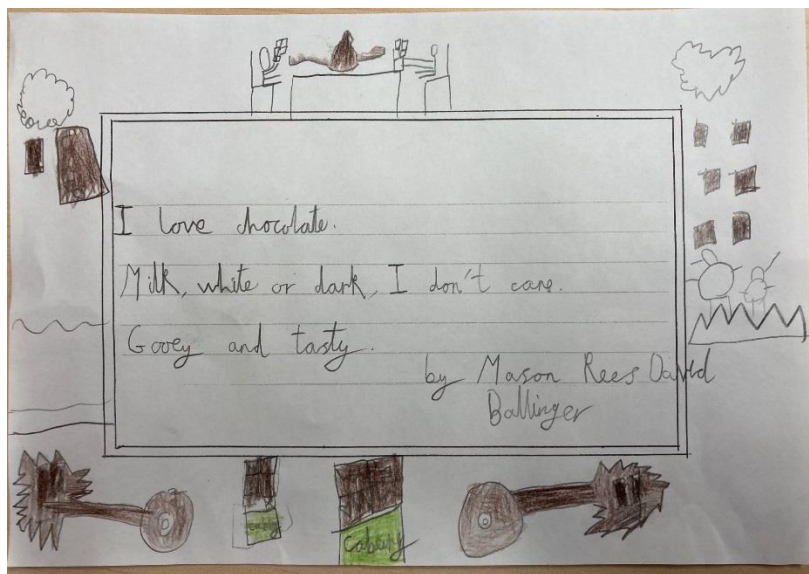 I love chocolate.
Milk, white or dark, I don't care.
Gooey and tasty.
by Mason Rees David
Ballinger